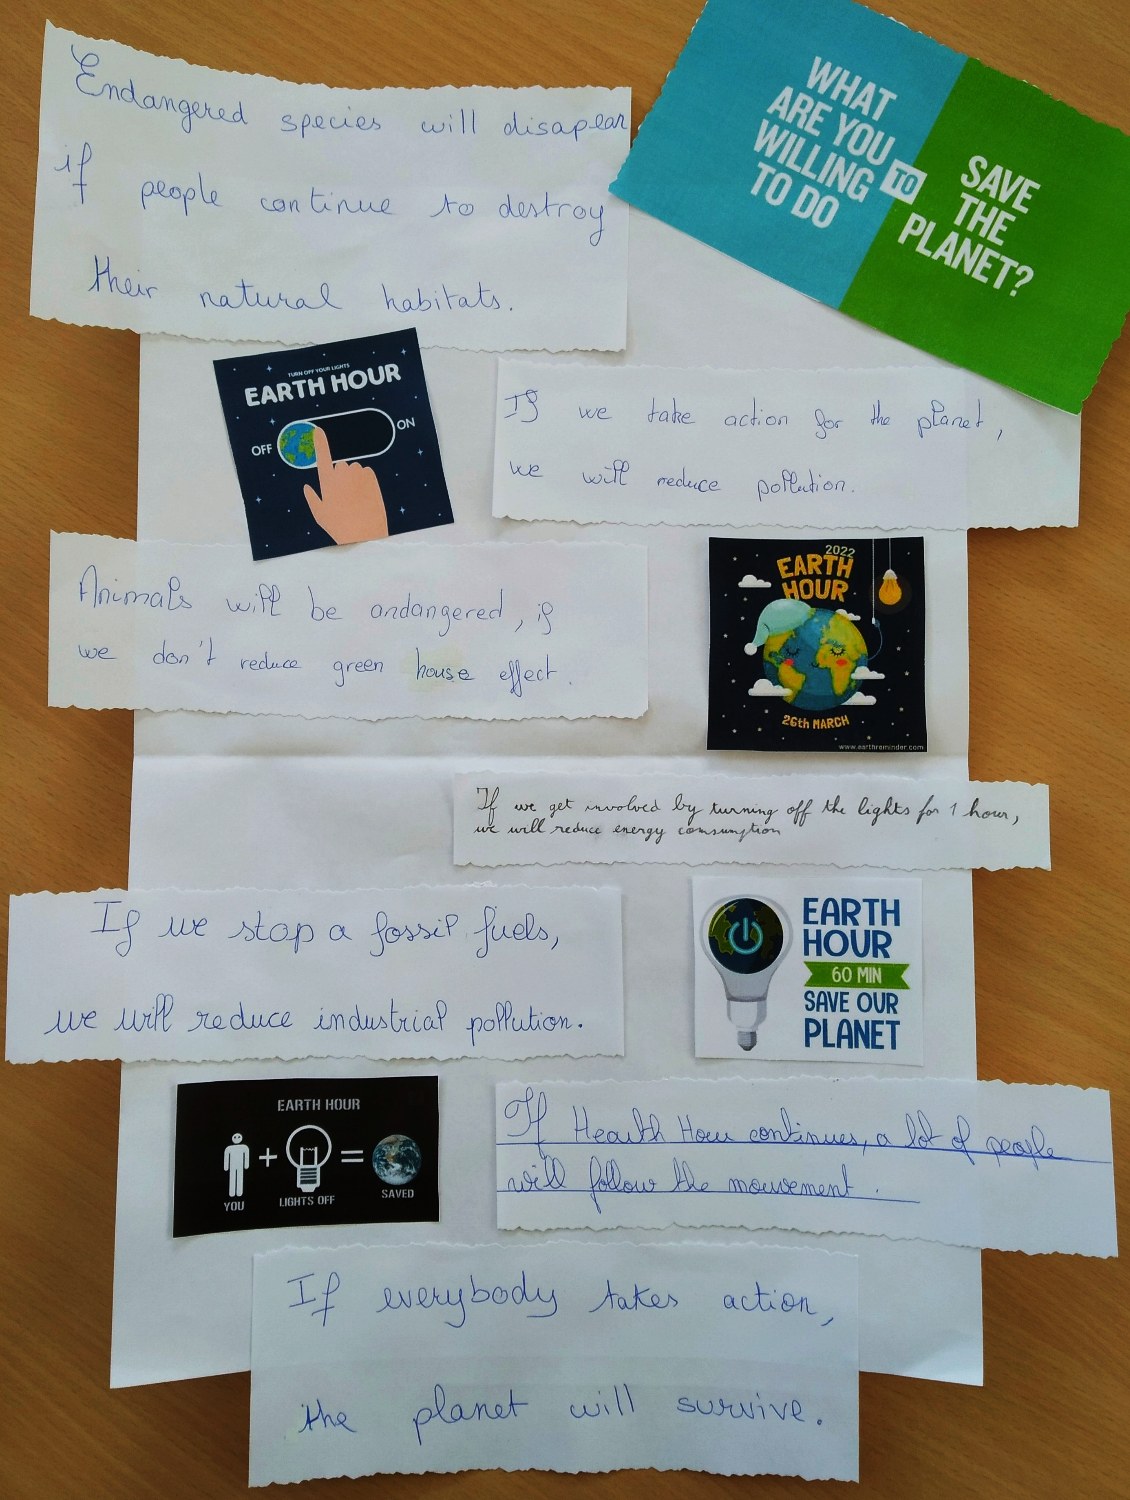 Endangered species will disapear
if people continue to destroy
their natural habitats.
WHAT
ARE YOU
WILLING
TO DO
TO
SAVE
THE
PLANET?
TURN OFF YOUR LIGHTS
EARTH HOUR
OFF
ON
If we take action for the planet,
we will reduce pollution.
Animals will be andangered, if
we don't reduce green house effect.
2022
EARTH
HOUR
26th MARCH
www.earthreminder.com
If we get involved by turning off the lights for 1 hour,
we will reduce energy comsumption
If we stop a fossil fuels,
we will reduce industrial pollution.
EARTH
HOUR
60 MIN
SAVE OUR
PLANET
EARTH HOUR
+
=
YOU
LIGHTS OFF
SAVED
If Hearth Hour continues, a lot of people
will follow the mouvement.
If everybody takes action,
the planet will survive.